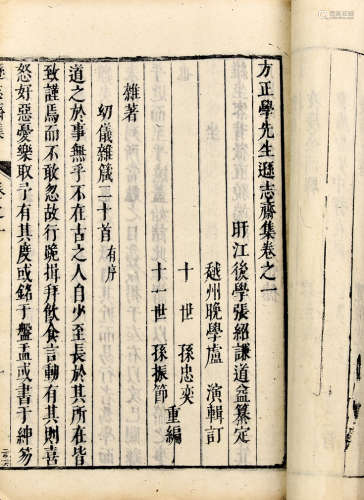 方正學先生遜志齋集卷之一
盱江後學張紹謙道益纂定
越州晚學盧演輯訂
十世孫忠奕
十一世孫振節
重編
雜著
幼儀雜箴二十首有序
道之於事無乎不在古之人自少至長於其所在皆
致謹焉而不敢忽故行跪揖拜飲食言動有其則喜
怒好惡憂樂取予有其度或銘于盤盂或書于紳笏
遜志齋集
卷之一